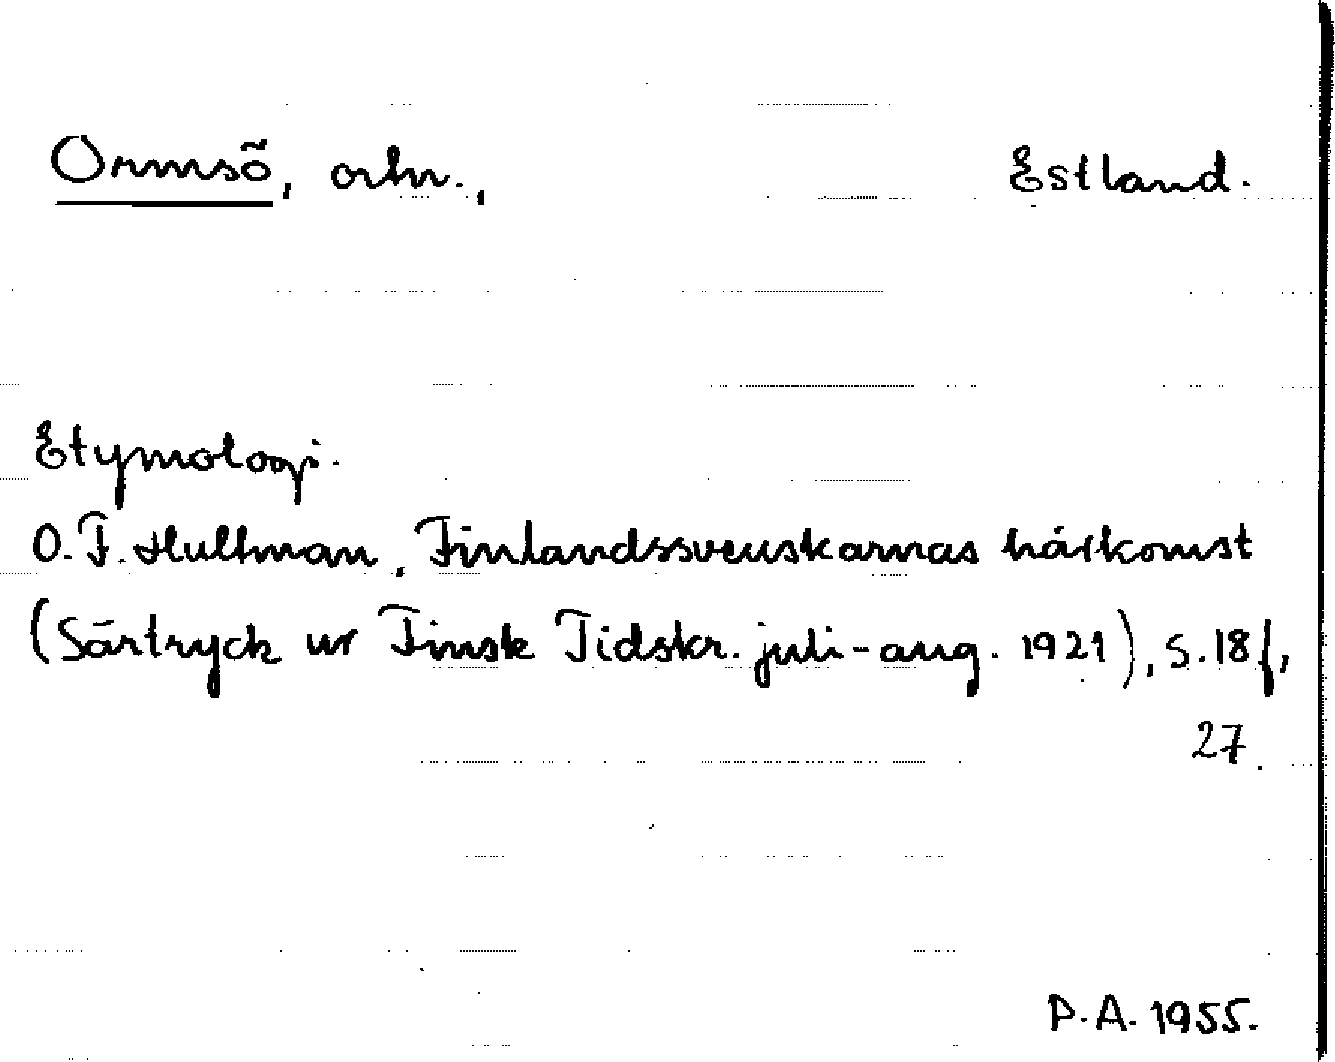 Ormsö, ortn., Estland.
Etymologi.
O. F. Hultman, Finlandssvenskarnas härkomst
(Särtryck ur Finsk Tidskr. juli-aug. 1921), s. 18 f,
27.
P.A. 1955.